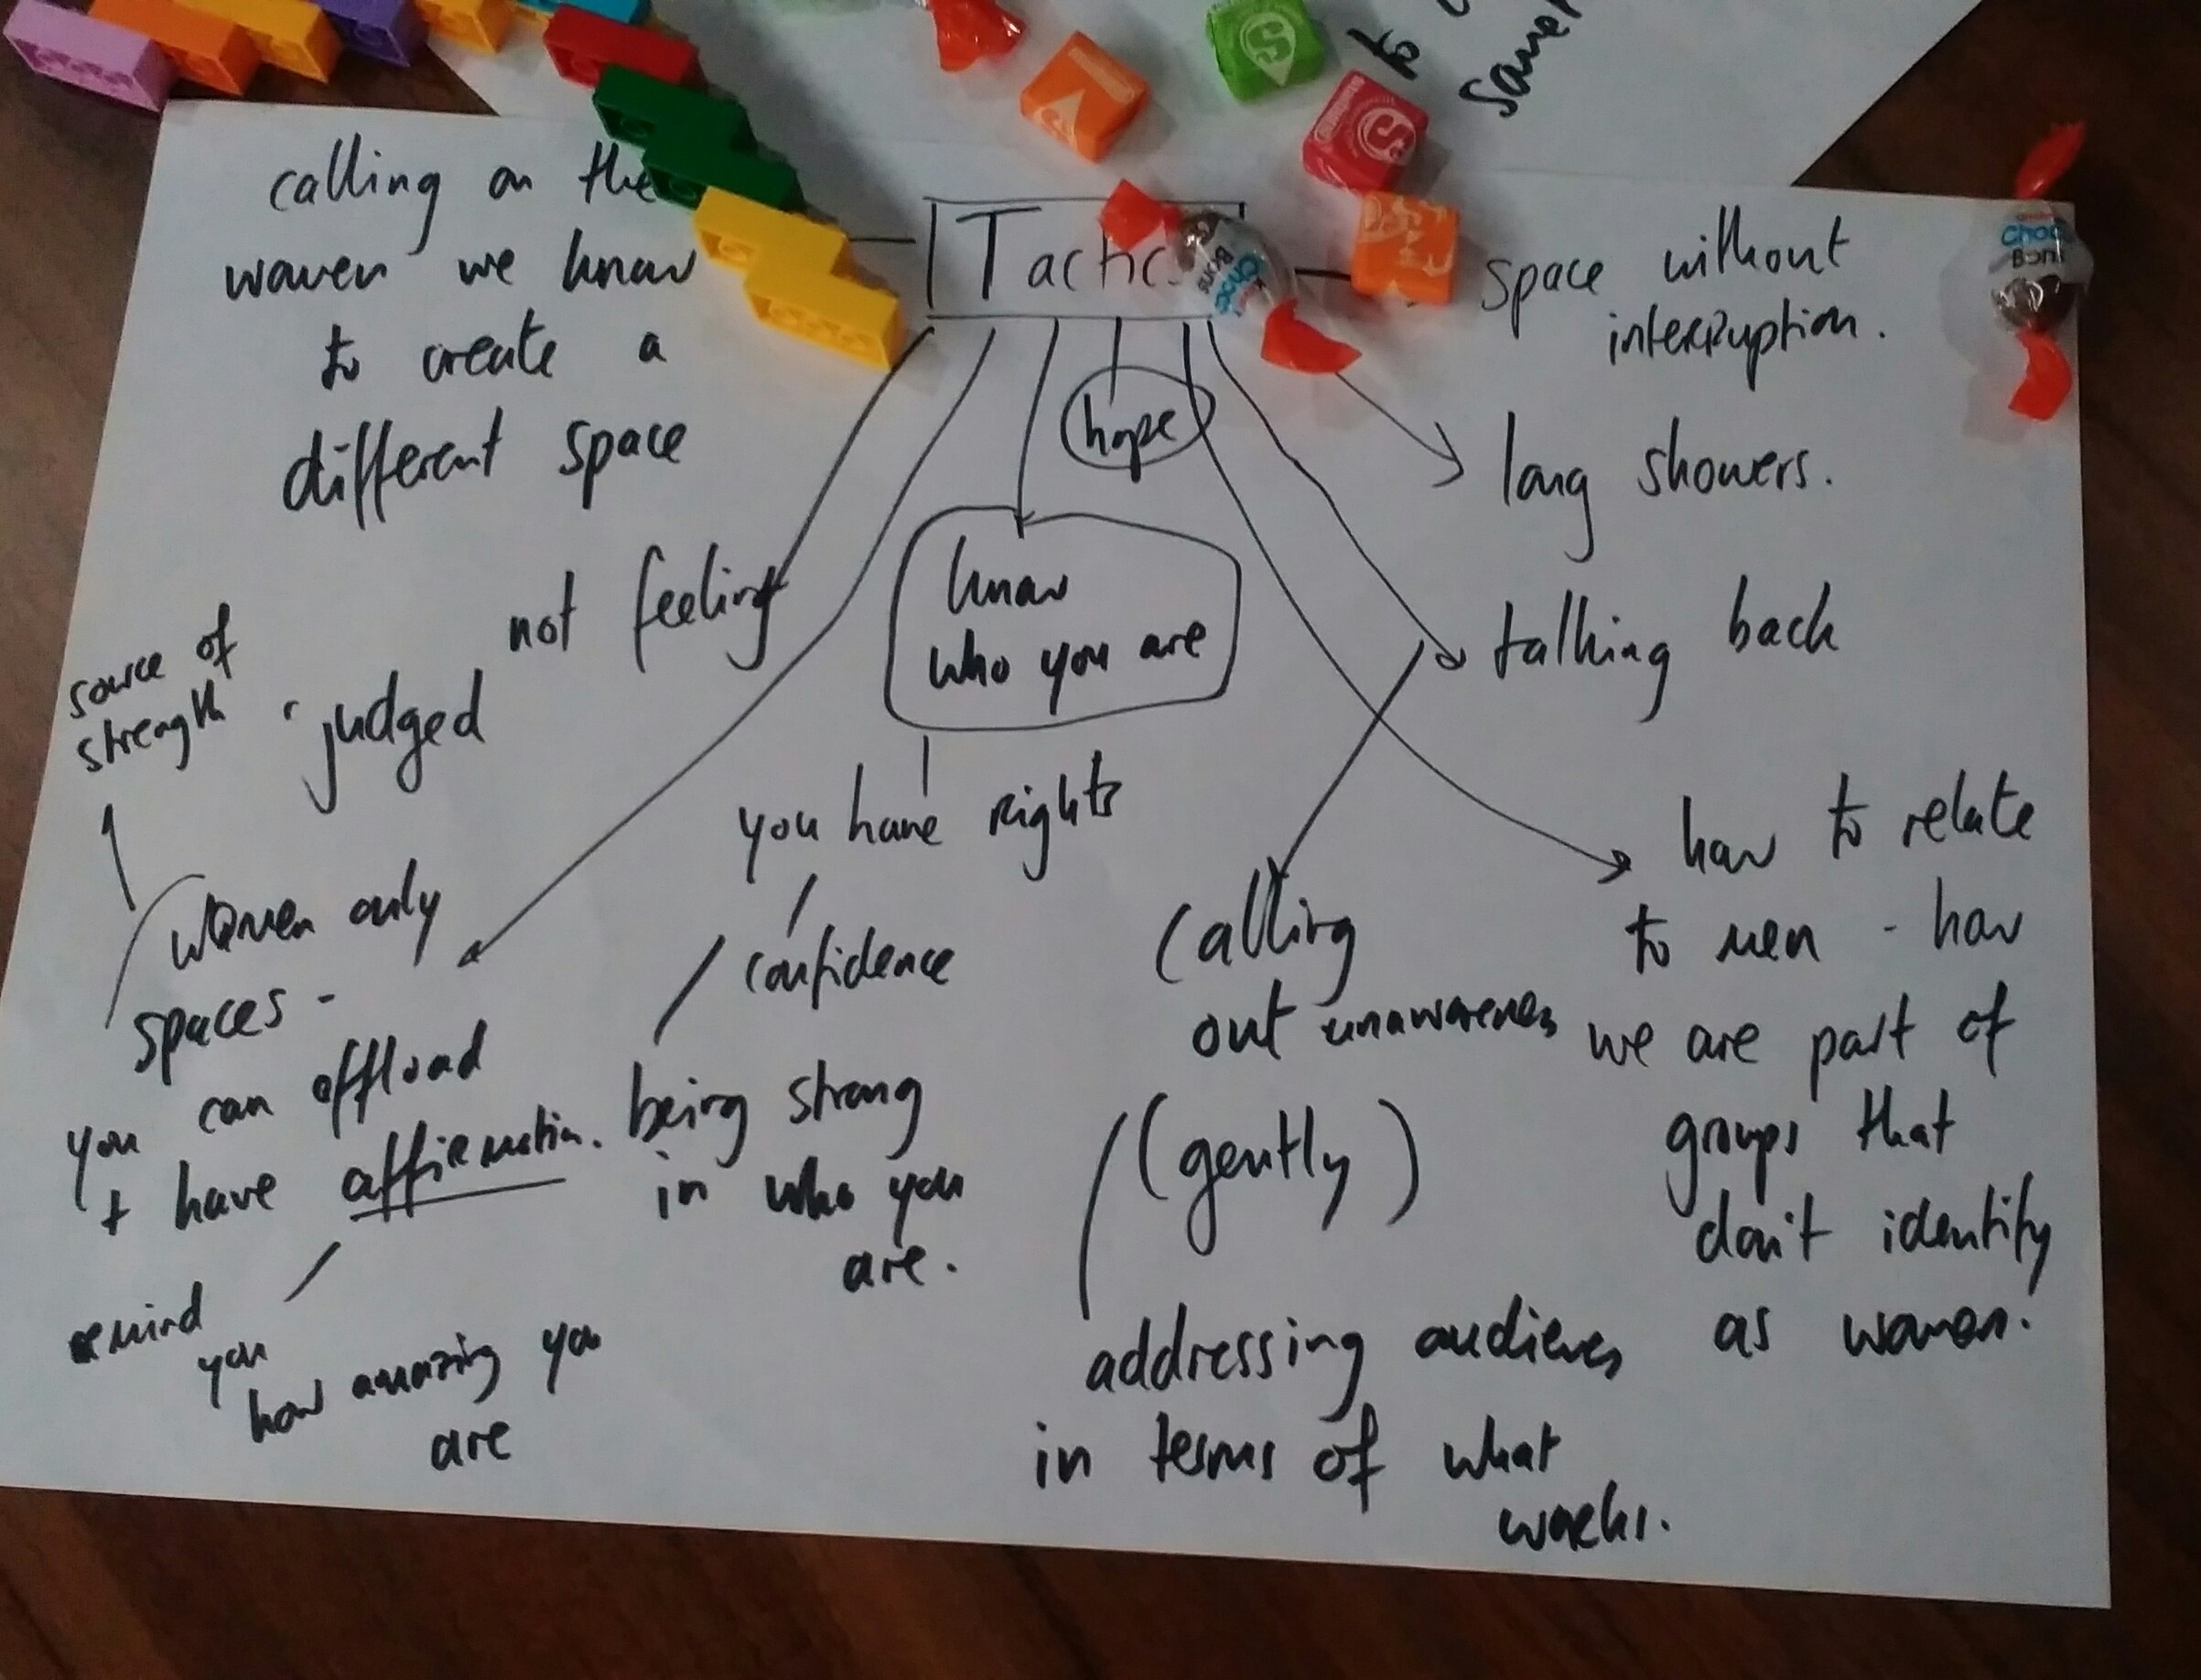 to
same
Tactic
calling on the
women we know
to create a
different space
space without
interruption.
hope
long showers.
know
who you are
not feeling
judged
talking back
source of
strength
you have rights
confidence
being strong
in who you
are.
women only
spaces -
you can offload
+ have affirmation.
remind
you
how amazing you
are
Calling
out unawareness
(gently)
addressing audiences
in terms of what
works.
how to relate
to men - how
we are part of
groups that
don't identify
as women.
Choco
Bons
Choco
Bons
S
S